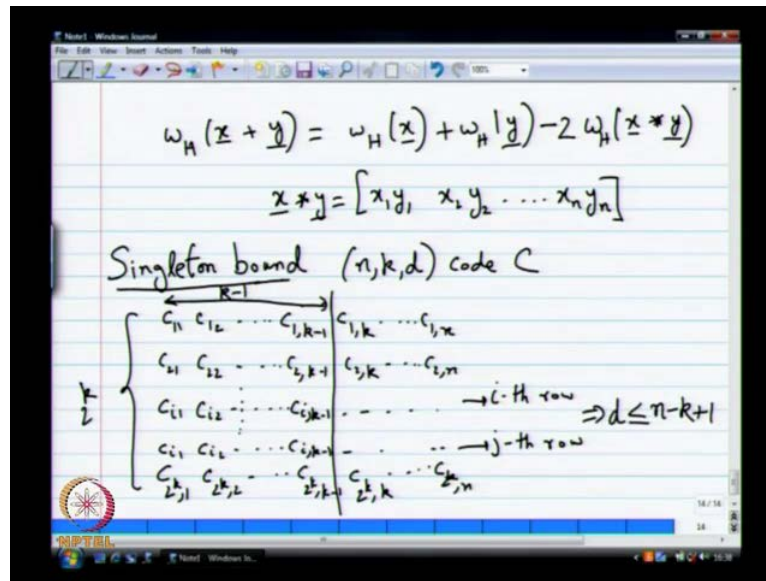 Note1 - Windows Journal
File Edit View Insert Actions Tools Help
100%
ω_H (x + y) = ω_H (x) + ω_H (y) - 2 ω_H (x * y)
x * y = [x₁y₁ x₂y₂ .... xₙyₙ]
Singleton bound (n, k, d) code C
k-1
C₁₁ C₁₂ ···· C₁,ₖ₋₁ C₁,ₖ ··· C₁,ₙ
C₂₁ C₂₂ ···· C₂,ₖ₋₁ C₂,ₖ ··· C₂,ₙ
2^k
C_{i1} C_{i2} ···· C_{i,k-1} - · - · → i-th row ⇒ d ≤ n-k+1
C_{i1} C_{i2} ··· C_{i,k-1} - ·· → j-th row
C_{2^k,1} C_{2^k,2} ··· C_{2^k,k-1} C_{2^k,k} ···· C_{2^k,n}
14 / 14
14
NPTEL
Note1 - Windows Jo...
16:38